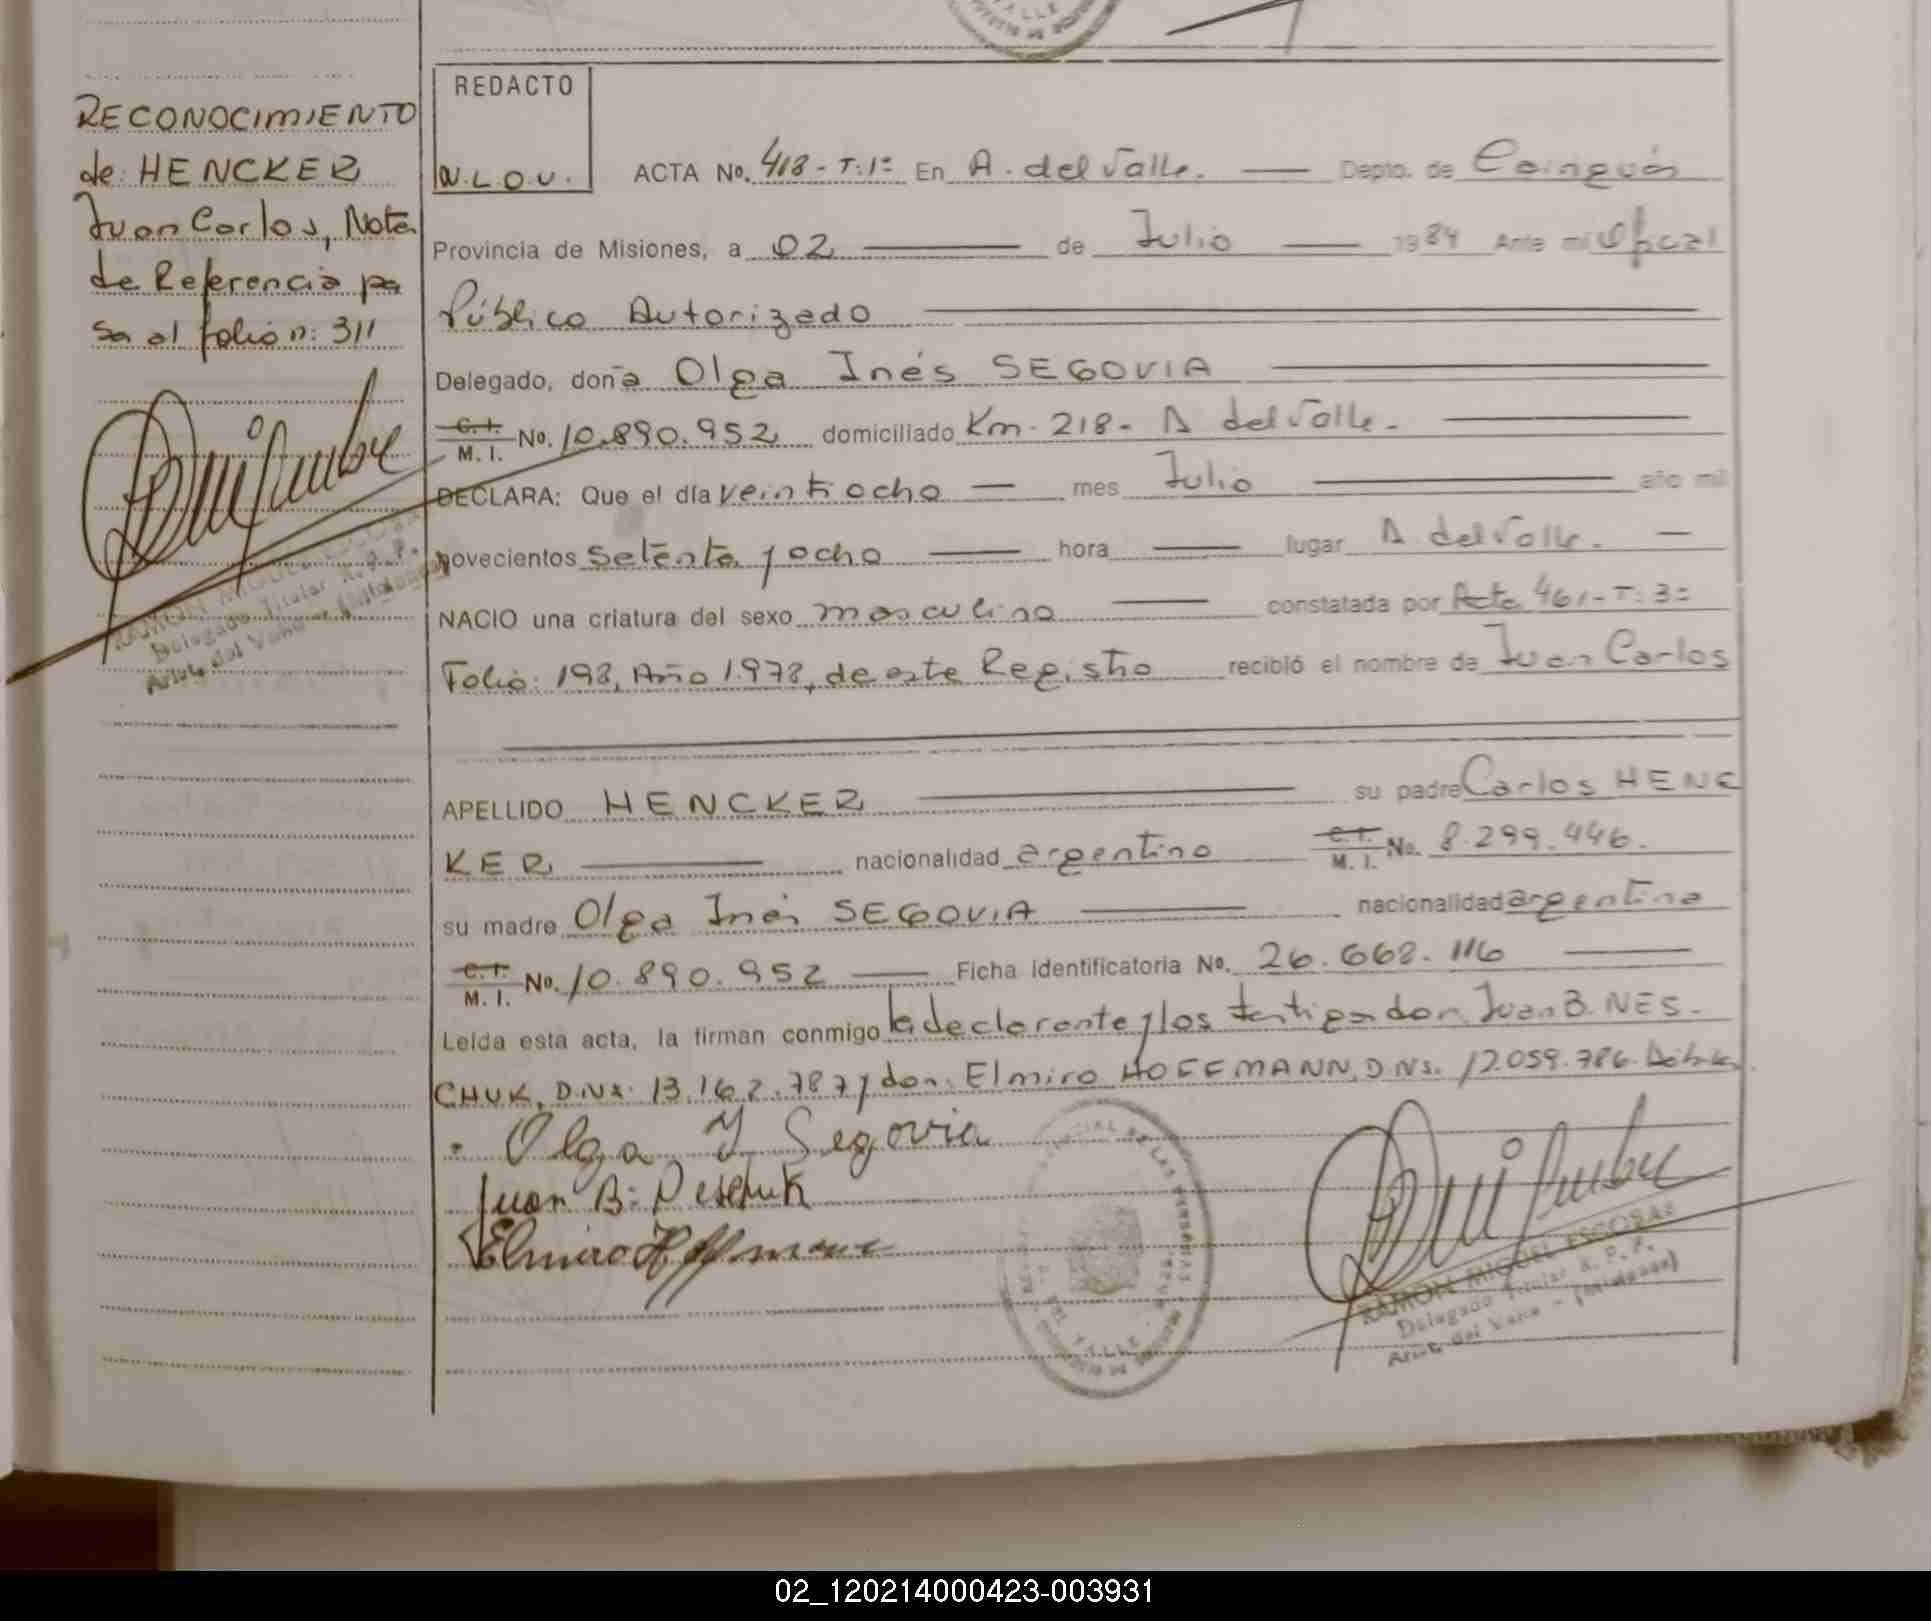 RECONOCIMIENTO
de: HENCKER
Juan Carlos, Nota
de Referencia pa
sa al folio n: 311
REDACTO
N.L.O.V.
ACTA No. 418-T:1º En A. del Valle. Depto. de Cainguás
Provincia de Misiones, a 02 de Julio 1984 Ante mi Oficial
Público Autorizado
Delegado, doña Olga Inés SEGOVIA
C.I. M.I. No. 10.890.952 domiciliado Km. 218- A del Valle.
DECLARA: Que el día veintiocho mes Julio año mil
novecientos setenta y ocho hora lugar A del Valle.
NACIO una criatura del sexo masculino constatada por Acta 461-T:3º
Folio: 198, Año 1.978, de este Registro recibió el nombre de Juan Carlos
APELLIDO HENCKER su padre Carlos HENC
KER nacionalidad argentino C.I. M.I. No. 8.299.446.
su madre Olga Inés SEGOVIA nacionalidad argentina
C.I. M.I. No. 10.890.952 Ficha identificatoria No. 26.668.116
Leída esta acta, la firman conmigo la declarante y los testigos don Juan B. NES-
CHUK, D.N.I. 13.162.787 y don: Elmiro HOFFMANN, D.N.I. 12.059.786.
Olga I Segovia
Juan B: Neschuk
Elmiro Hoffmann
RAMON MIGUEL ESCOBAR
Delegado Titular R.P.P.
Aristo. del Valle - (Misiones)
02_120214000423-003931